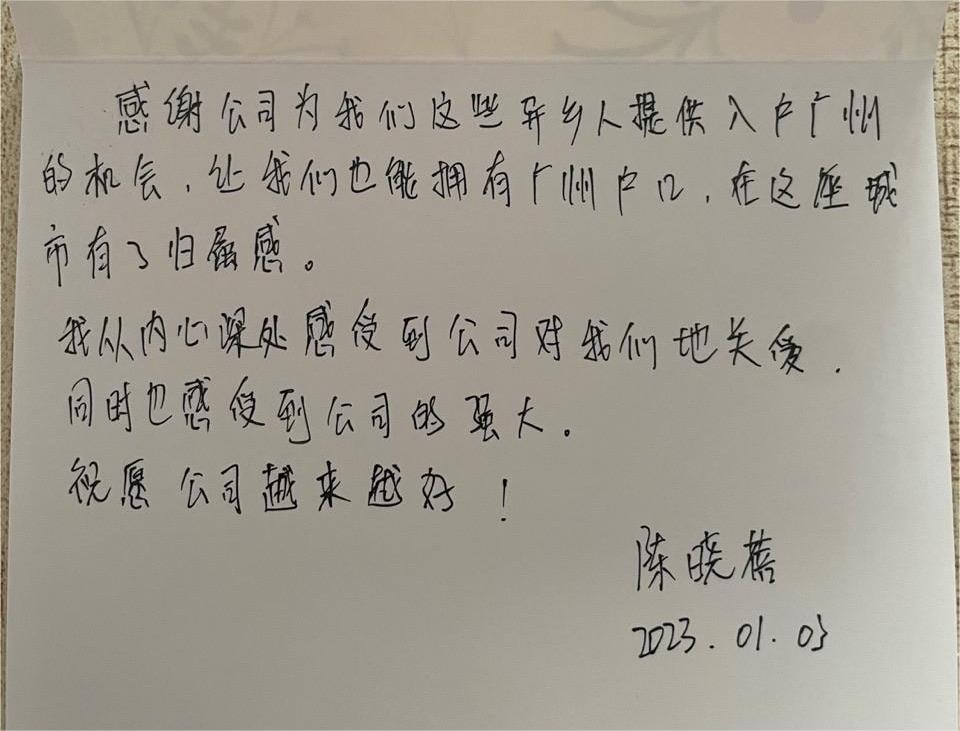 感谢公司为我们这些异乡人提供入户广州
的机会,让我们也能拥有广州户口,在这座城
市有了归属感。
我从内心深处感受到公司对我们地关爱,
同时也感受到公司的强大。
祝愿公司越来越好!
陈晓蓓
2023.01.03